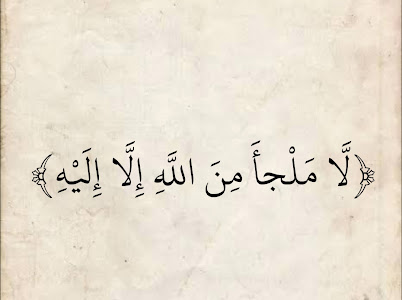 ﴿لَّا مَلْجأَ مِنَ اللَّهِ إِلَّا إِلَيْهِ﴾